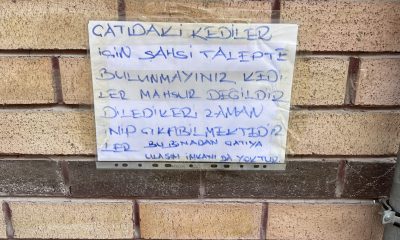 ÇATIDAKİ KEDİLER
İÇİN ŞAHSİ TALEPTE
BULUNMAYINIZ, KEDİ
LER MAHSUR DEĞİLDİR
DİLEDİKERİ ZAMAN
İNİP ÇIKABİLMEKTEDİR
LER BU BİNADAN ÇATIYA
ULAŞIM İMKANI DA YOKTUR